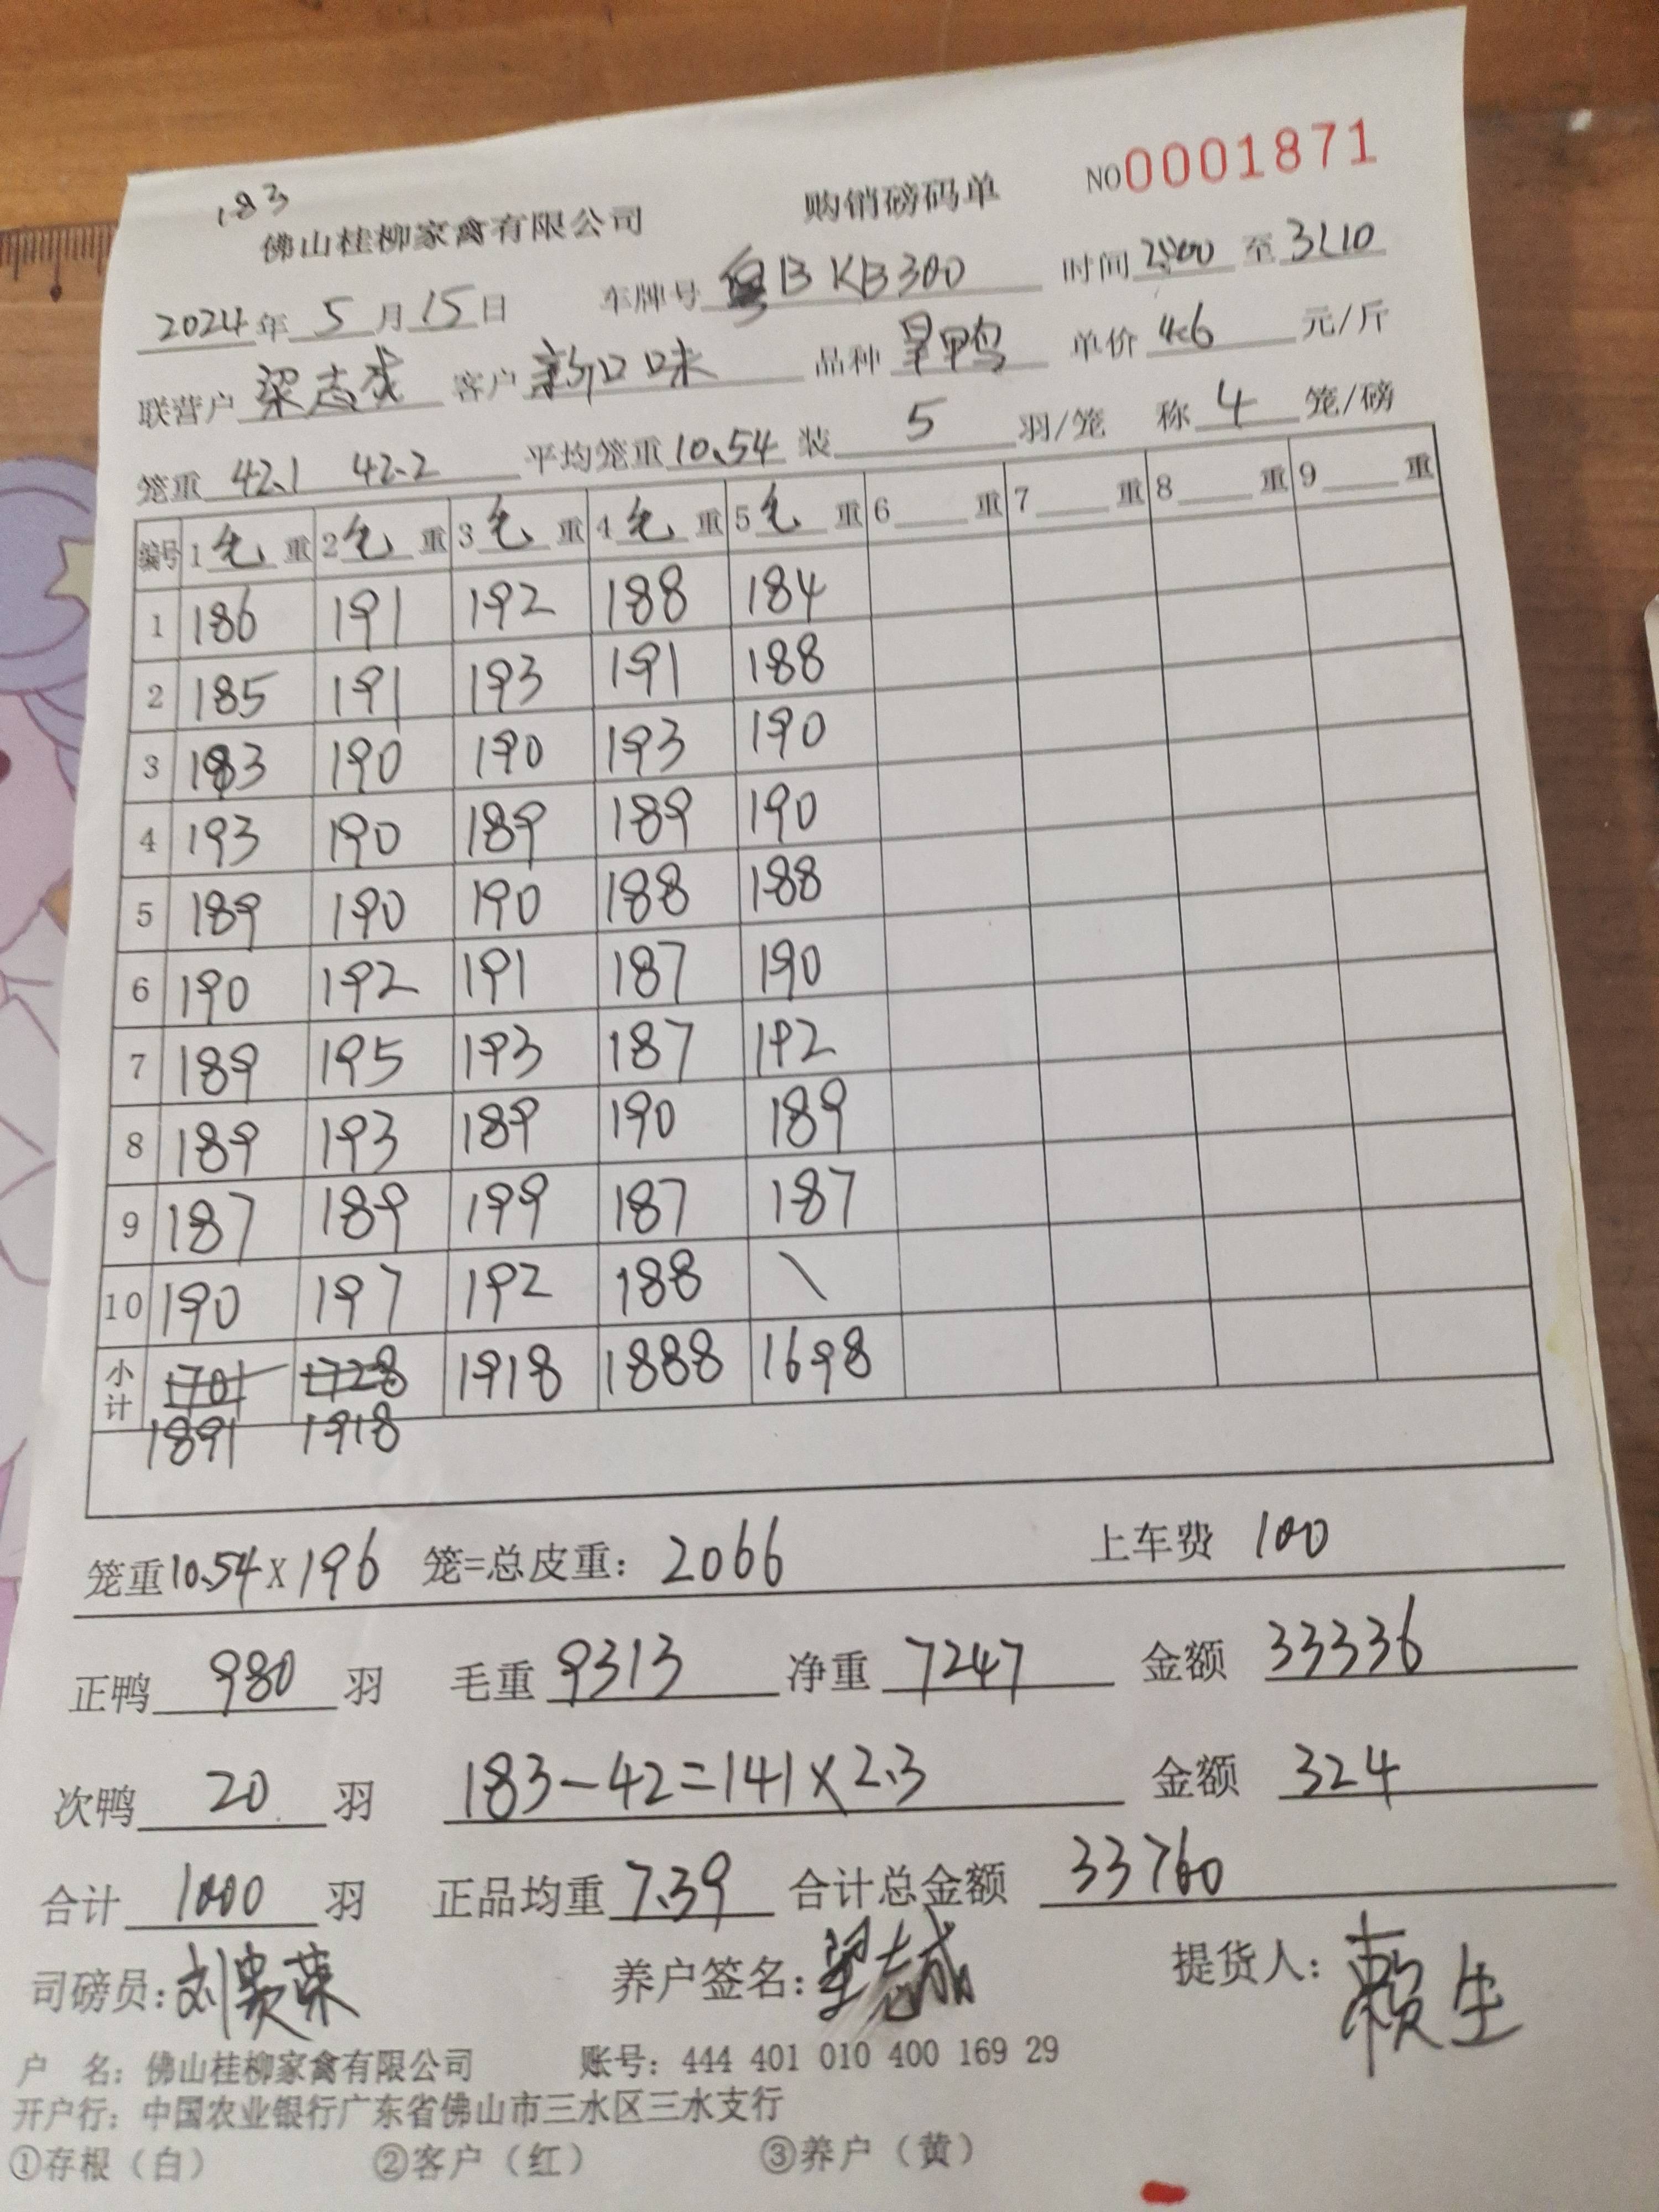 183
佛山桂柳家禽有限公司 购销磅码单 NO0001871
2024年5月15日 车牌号 粤BKB300 时间 2:00 至 3:10
联营户 梁志成 客户 新口味 品种 旱鸭 单价 4.6 元/斤
笼重 42.1 42.2 平均笼重 10.54 装 5 羽/笼 称 4 笼/磅
编号 1毛重 2毛重 3毛重 4毛重 5毛重 6重 7重 8重 9重
1 186 191 192 188 184
2 185 191 193 191 188
3 183 190 190 193 190
4 193 190 189 189 190
5 189 190 190 188 188
6 190 192 191 187 190
7 189 195 193 187 192
8 189 193 189 190 189
9 187 189 199 187 187
10 190 197 192 188 \
小计 1701 1728 1918 1888 1698
1891 1918
笼重10.54×196 笼=总皮重：2066 上车费 100
正鸭 980 羽 毛重 9313 净重 7247 金额 33336
次鸭 20 羽 183-42=141×2.3 金额 324
合计 1000 羽 正品均重 7.39 合计总金额 33760
司磅员：刘贵荣 养户签名：梁志成 提货人：赖生
户 名：佛山桂柳家禽有限公司 账号：444 401 010 400 169 29
开户行：中国农业银行广东省佛山市三水区三水支行
①存根（白） ②客户（红） ③养户（黄）